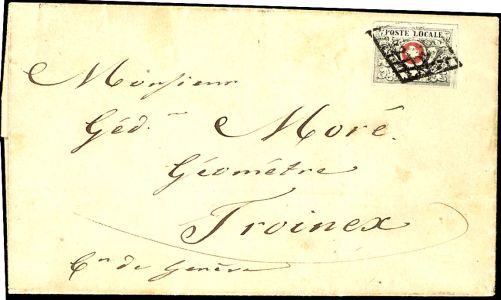 POSTE LOCALE
Monsieur
Géd.n Moré.
Géomètre
Troinex
C.on de Genève